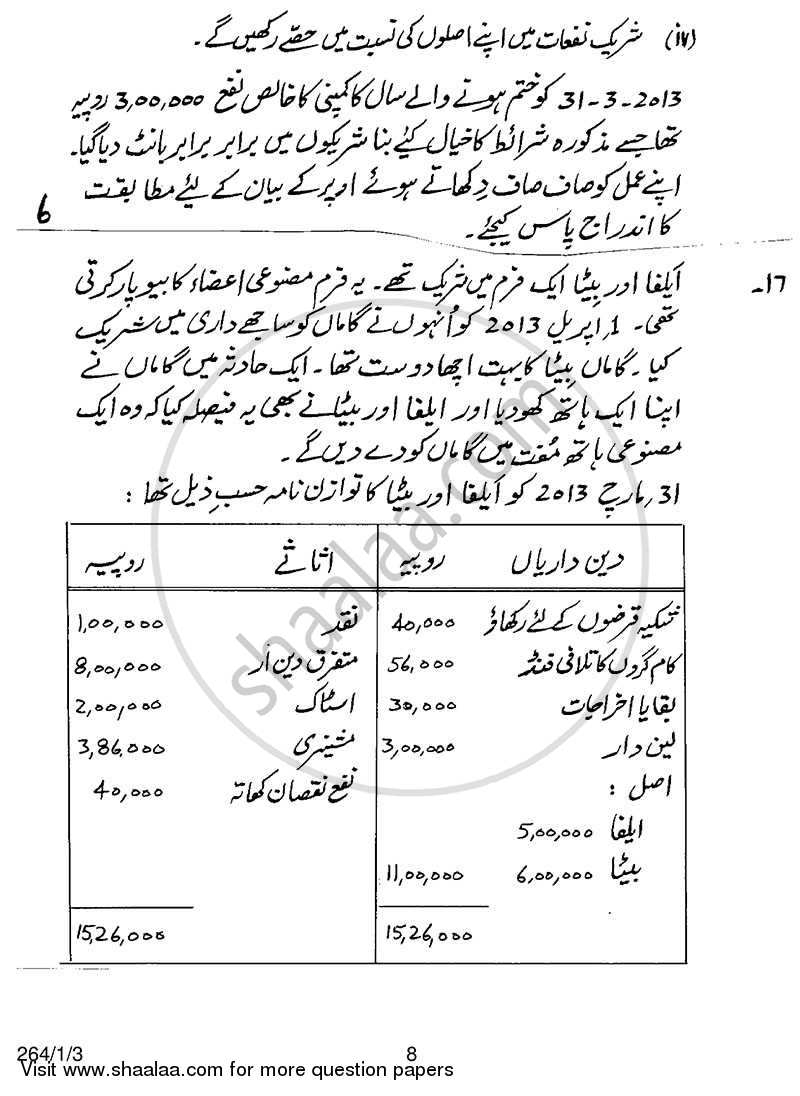 (iv) شریک نفعات میں اپنے اصلوں کی نسبت میں حصّے رکھیں گے۔
31-3-2013 کو ختم ہونے والے سال کا کمپنی کا خالص نفع 3,00,000 روپیہ
تھا جسے مذکورہ شرائط کا خیال کیۓ بنا شریکوں میں برابر برابر بانٹ دیا گیا۔
اپنے عمل کو صاف صاف دِکھاتے ہوئے اوپر کے بیان کے لیۓ مطابقت
کا اندراج پاس کیجئے۔ 6
17۔ ایلفا اور بیٹا ایک فرم میں شریک تھے۔ یہ فرم مصنوعی اعضاء کا بیوپار کرتی
تھی۔ 1,اپریل 2013 کو اُنہوں نے گاماں کو ساجھے داری میں شریک
کیا۔ گاماں بیٹا کا بہت اچھا دوست تھا۔ ایک حادثہ میں گاماں نے
اپنا ایک ہاتھ کھو دیا اور ایلفا اور بیٹا نے بھی یہ فیصلہ کیا کہ وہ ایک
مصنوعی ہاتھ مُفت میں گاماں کو دے دیں گے۔
31,مارچ 2013 کو ایلفا اور بیٹا کا توازن نامہ حسبِ ذیل تھا :
دین داریاں روپیہ اثاثے روپیہ
مشکیہ قرضوں کے لئے رکھاؤ 40,000 نقد 1,00,000
کام گروں کا تلافی فنڈ 56,000 متفرق دین دار 8,00,000
بقایا اخراجات 30,000 اسٹاک 2,00,000
لین دار 3,00,000 مشینری 3,86,000
اصل : نفع نقصان کھاتہ 40,000
ایلفا 5,00,000
بیٹا 6,00,000 11,00,000
15,26,000 15,26,000
shaalaa.com
264/1/3 8
Visit www.shaalaa.com for more question papers